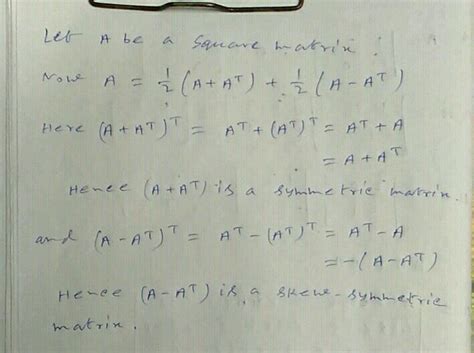 Let A be a square matrix.
Now A = 1/2 (A + Aᵀ) + 1/2 (A - Aᵀ)
Here (A + Aᵀ)ᵀ = Aᵀ + (Aᵀ)ᵀ = Aᵀ + A
= A + Aᵀ
Hence (A + Aᵀ) is a symmetric matrix.
and (A - Aᵀ)ᵀ = Aᵀ - (Aᵀ)ᵀ = Aᵀ - A
= -(A - Aᵀ)
Hence (A - Aᵀ) is a skew-symmetric
matrix.